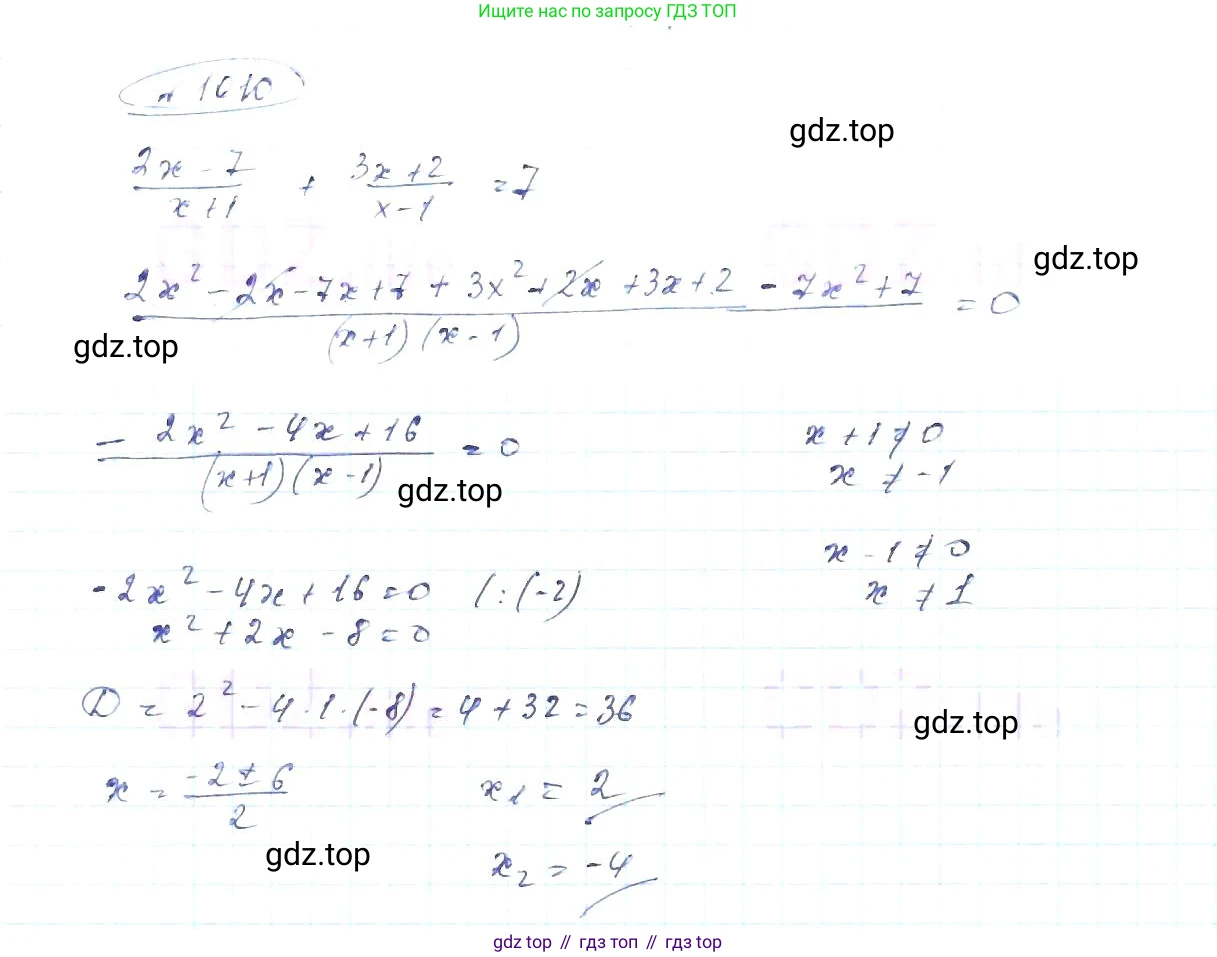 Ищите нас по запросу ГДЗ ТОП
№ 1010
gdz.top
(2x - 7)/(x + 1) + (3x + 2)/(x - 1) = 7
gdz.top
(2x² - 2x - 7x + 7 + 3x² + 2x + 3x + 2 - 7x² + 7)/((x+1)(x-1)) = 0
gdz.top
(- 2x² - 4x + 16)/((x+1)(x-1)) = 0
x + 1 ≠ 0
x ≠ -1
gdz.top
x - 1 ≠ 0
x ≠ 1
-2x² - 4x + 16 = 0 (:(-2)
x² + 2x - 8 = 0
D = 2² - 4·1·(-8) = 4 + 32 = 36
gdz.top
x = (-2 ± 6)/2
x₁ = 2
gdz.top
x₂ = -4
gdz top // гдз топ // gdz top